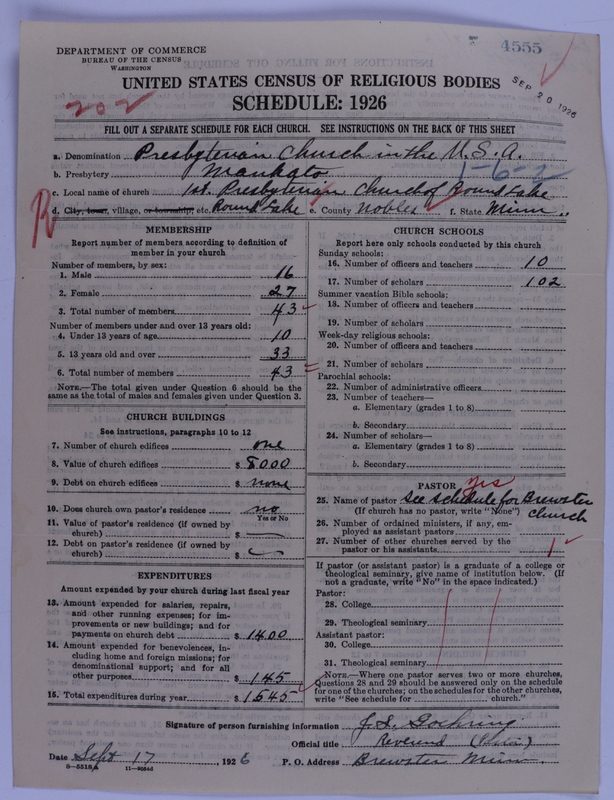 4555
DEPARTMENT OF COMMERCE
BUREAU OF THE CENSUS
WASHINGTON
SEP 20 1926
UNITED STATES CENSUS OF RELIGIOUS BODIES
202
SCHEDULE: 1926
FILL OUT A SEPARATE SCHEDULE FOR EACH CHURCH. SEE INSTRUCTIONS ON THE BACK OF THIS SHEET
a. Denomination Presbyterian Church in the U.S.A.
b. Presbytery Mankato 1-6-2
c. Local name of church 1st. Presbyterian Church of Round Lake
R
d. City, town, village, or township, etc. Round Lake e. County Nobles f. State Minn.
MEMBERSHIP
Report number of members according to definition of
member in your church
Number of members, by sex:
1. Male 16
2. Female 27
3. Total number of members 43
Number of members under and over 13 years old:
4. Under 13 years of age 10
5. 13 years old and over 33
6. Total number of members 43
NOTE.—The total given under Question 6 should be
same as the total of males and females given under Question 3.
CHURCH BUILDINGS
See instructions, paragraphs 10 to 12
7. Number of church edifices one
8. Value of church edifices $ 8000
9. Debt on church edifices $ none
10. Does church own pastor's residence no
Yes or No
11. Value of pastor's residence (if owned by
church) $
12. Debt on pastor's residence (if owned by
church) $
EXPENDITURES
Amount expended by your church during last fiscal year
13. Amount expended for salaries, repairs,
and other running expenses; for im-
provements or new buildings; and for
payments on church debt $ 1400
14. Amount expended for benevolences, in-
cluding home and foreign missions; for
denominational support; and for all
other purposes $ 145
15. Total expenditures during year $ 1545
CHURCH SCHOOLS
Report here only schools conducted by this church
Sunday schools:
16. Number of officers and teachers 10
17. Number of scholars 102
Summer vacation Bible schools:
18. Number of officers and teachers
19. Number of scholars
Week-day religious schools:
20. Number of officers and teachers
21. Number of scholars
Parochial schools:
22. Number of administrative officers
23. Number of teachers—
a. Elementary (grades 1 to 8)
b. Secondary
24. Number of scholars—
a. Elementary (grades 1 to 8)
b. Secondary
PASTOR yes
25. Name of pastor See schedule for Brewster
(If church has no pastor, write "None") Church
26. Number of ordained ministers, if any, em-
ployed as assistant pastors
27. Number of other churches served by the
pastor or his assistants 1
If pastor (or assistant pastor) is a graduate of a college or
theological seminary, give name of institution below. (If
not a graduate, write "No" in the space indicated.)
Pastor:
28. College
29. Theological seminary
Assistant pastor:
30. College
31. Theological seminary
NOTE.—Where one pastor serves two or more churches,
Questions 28 and 29 should be answered only on the schedule
for one of the churches; on the schedules for the other churches,
write "See schedule for church."
Signature of person furnishing information
Official title Reverend (Pastor)
Date Sept 17, 1926 P. O. Address Brewster Minn.